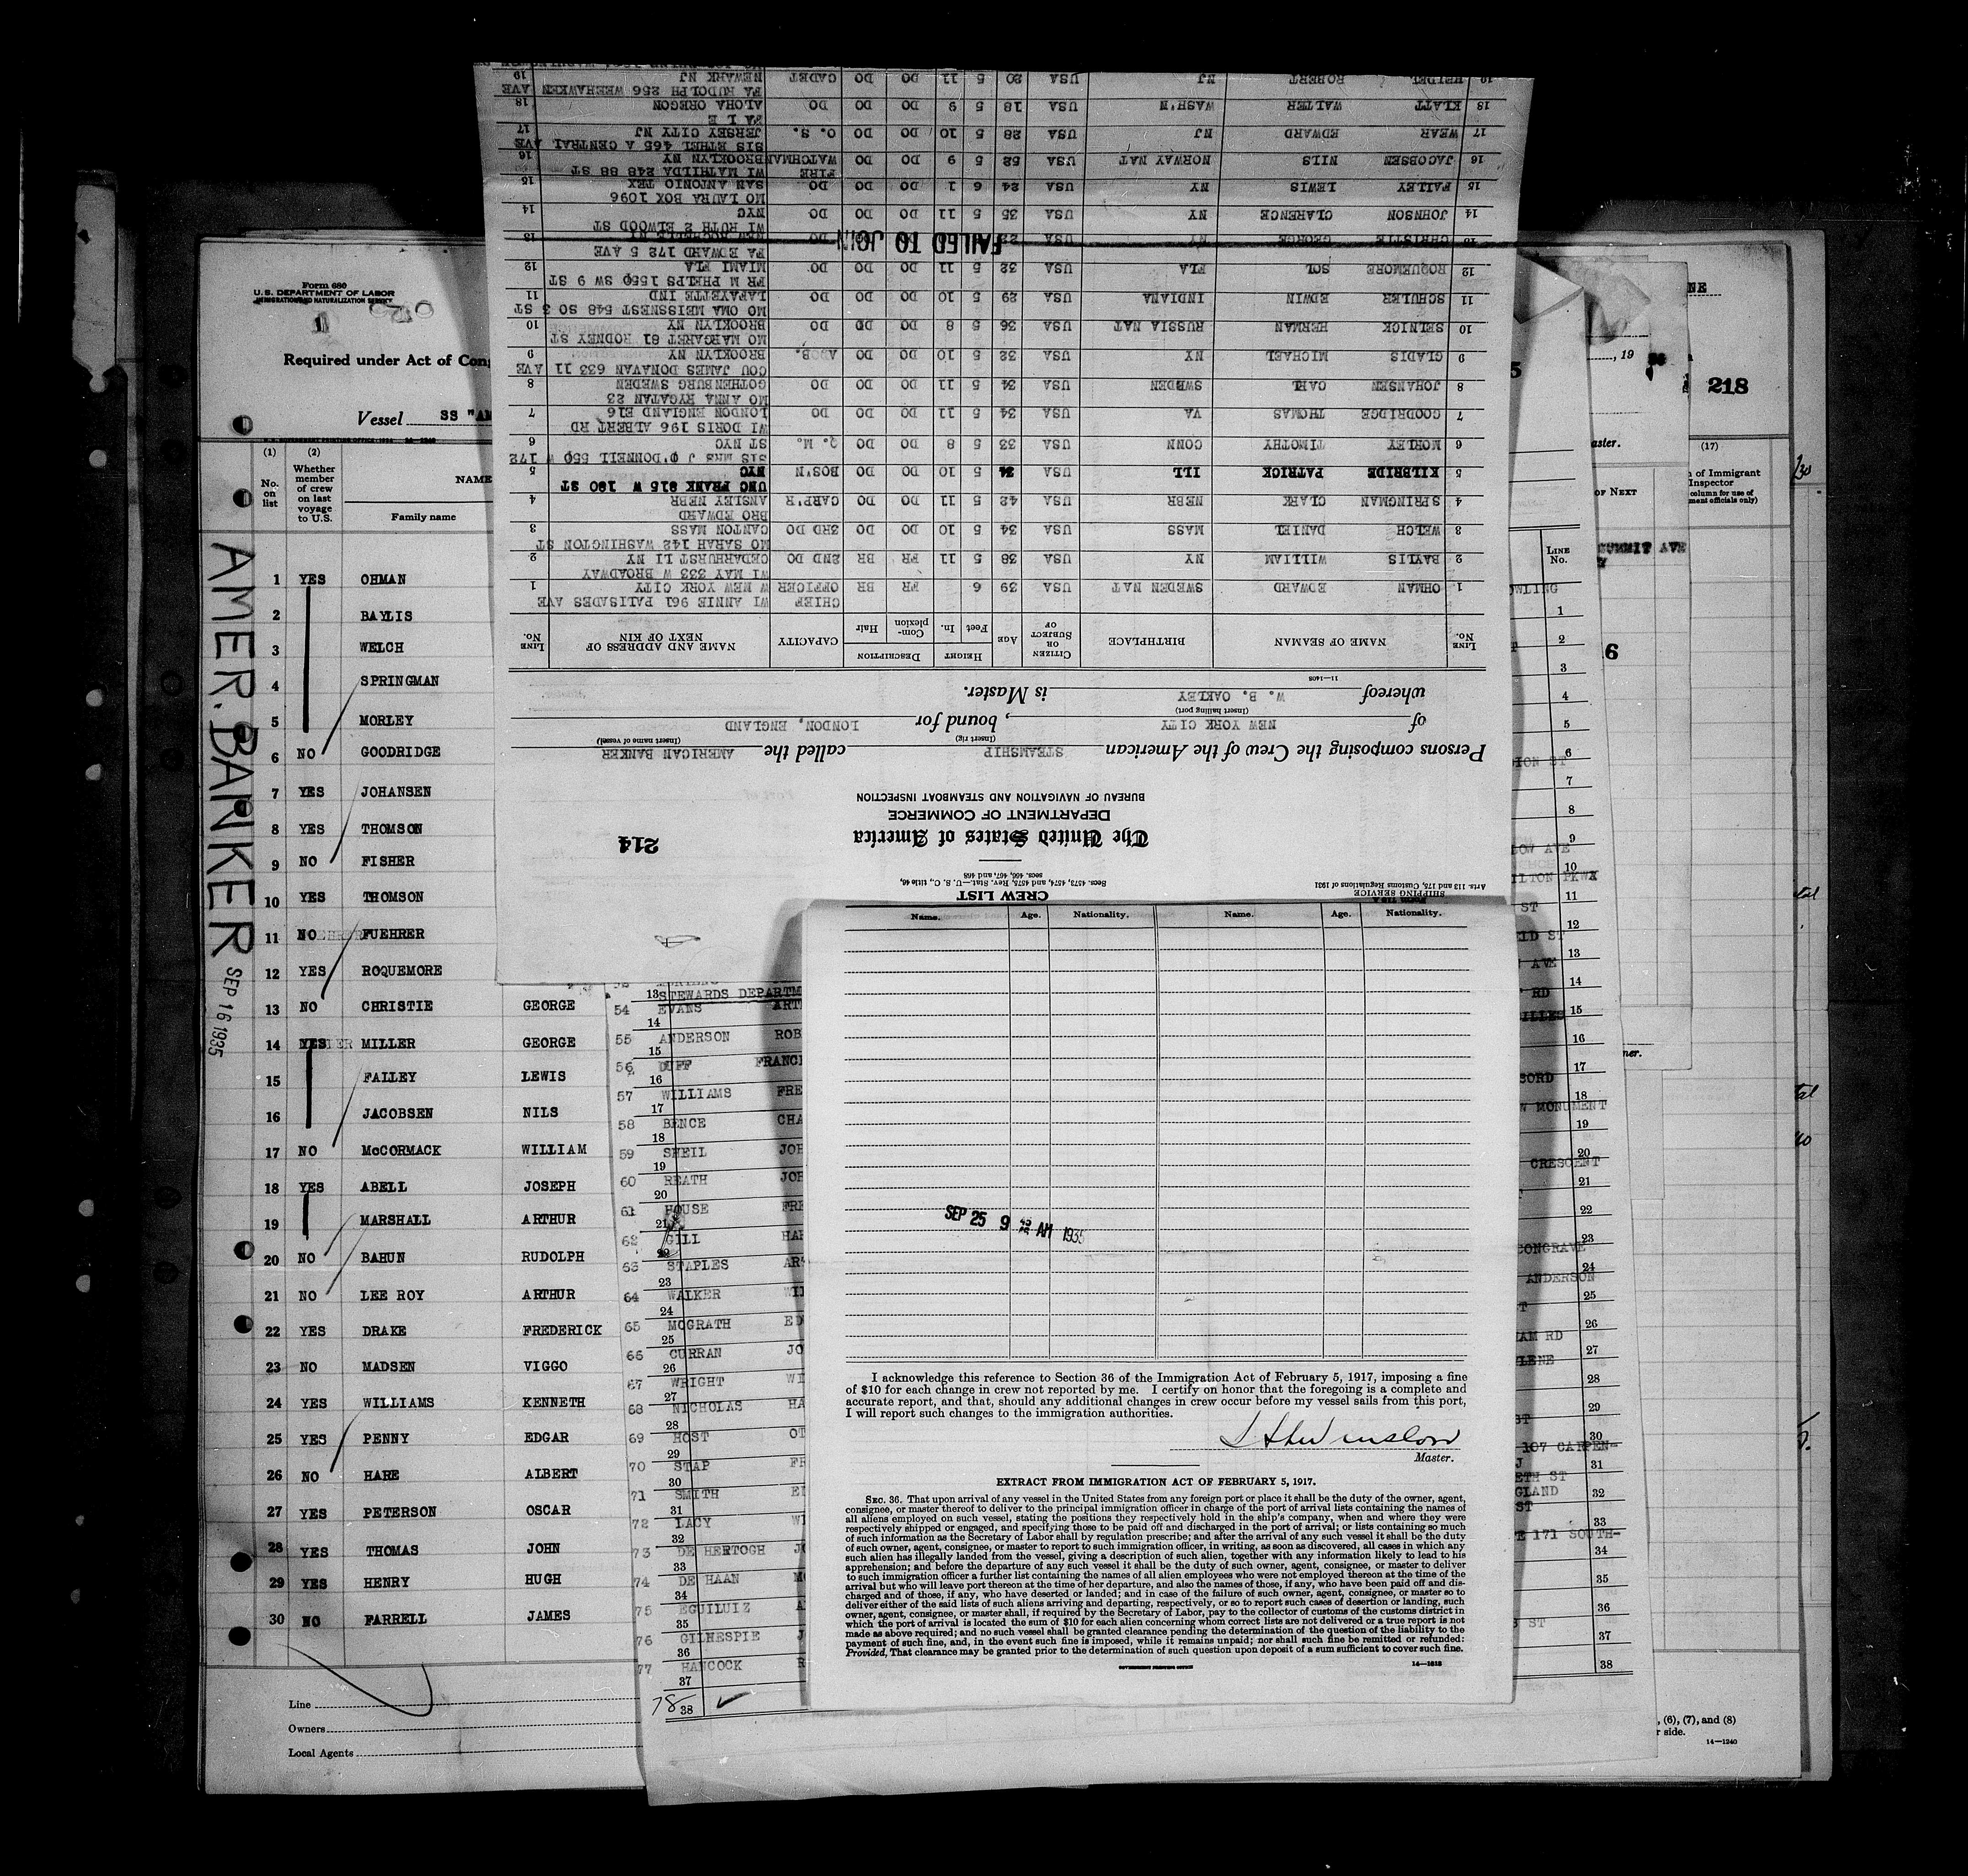 Form 680
U.S. DEPARTMENT OF LABOR
IMMIGRATION AND NATURALIZATION SERVICE
1
Required under Act of Con
Vessel SS "AM
(1) (2)
No. on list
Whether member of crew on last voyage to U.S.
NAME
Family name
AMER. BANKER
SEP 16 1935
1 YES OHMAN
2 BAYLIS
3 WELCH
4 SPRINGMAN
5 MORLEY
6 NO GOODRIDGE
7 YES JOHANSEN
8 YES THOMSON
9 NO FISHER
10 YES THOMSON
11 NO FUEHRER
12 YES ROQUEMORE
13 NO CHRISTIE GEORGE
14 YES MILLER GEORGE
15 FAILEY LEWIS
16 JACOBSEN NILS
17 NO McCORMACK WILLIAM
18 YES ABELL JOSEPH
19 MARSHALL ARTHUR
20 NO BAHUN RUDOLPH
21 NO LEE ROY ARTHUR
22 YES DRAKE FREDERICK
23 NO MADSEN VIGGO
24 YES WILLIAMS KENNETH
25 YES PENNY EDGAR
26 NO HARE ALBERT
27 YES PETERSON OSCAR
28 YES THOMAS JOHN
29 YES HENRY HUGH
30 NO FARRELL JAMES
Line
Owners
Local Agents
SHIPPING SERVICE
Arts. 113 and 175, Customs Regulations of 1931
CREW LIST
Secs. 4573, 4574, and 4575, Rev. Stat.—U. S. C., title 46,
secs. 466, 467, and 468
The United States of America
214
DEPARTMENT OF COMMERCE
BUREAU OF NAVIGATION AND STEAMBOAT INSPECTION
Persons composing the Crew of the American STEAMSHIP called the AMERICAN BANKER
(Insert rig) (Insert name of vessel)
of NEW YORK CITY, bound for LONDON, ENGLAND
(Insert hailing port)
whereof W. B. OAKLEY is Master.
11—1408
LINE No. NAME OF SEAMAN BIRTHPLACE CITIZEN OR SUBJECT OF Age Height Feet In. DESCRIPTION Complexion Hair CAPACITY NAME AND ADDRESS OF NEXT OF KIN LINE No.
1 OHMAN EDWARD SWEDEN NAT USA 39 6 FR BR CHIEF OFFICER WI ANNIE 961 PALISADES AVE W NEW YORK CITY 1
2 BAYLIS WILLIAM NY USA 38 5 11 FR BR 2ND DO WI MAY 333 W BROADWAY CEDARHURST LI NY 2
3 WELCH DANIEL MASS USA 34 5 10 DO DO 3RD DO MO SARAH 142 WASHINGTON ST CANTON MASS 3
4 SPRINGMAN CLARK NEBR USA 42 5 11 DO DO CARP'R BRO EDWARD AINSLEY NEBR 4
5 KILBRIDE PATRICK ILL USA 34 5 10 DO DO BOS'N UNC FRANK 915 W 180 ST NYC 5
6 MORLEY TIMOTHY CONN USA 33 5 8 DO DO Q. M. SIS MRS J O'DONNELL 550 W 172 ST NYC 6
7 GOODRIDGE THOMAS VA USA 34 5 11 DO DO DO WI DORIS 196 ALBERT RD LONDON ENGLAND E16 7
8 JOHANSEN CARL SWEDEN USA 34 5 11 DO DO DO MO ANNA RYGATAN 23 GOTHENBURG SWEDEN 8
9 GLADIS MICHAEL NY USA 32 5 10 DO DO COU JAMES DONAVAN 633 11 AVE BROOKLYN NY 9
10 SELNICK HERMAN RUSSIA NAT USA 36 5 8 DO DO DO MO MARGARET 81 RODNEY ST BROOKLYN NY 10
11 SCHULER EDWIN INDIANA USA 29 5 10 DO DO DO MO OMA MEISSNEST 548 SO 3 ST LAFAYETTE IND 11
12 ROQUEMORE SOL FLA USA 32 5 11 DO DO DO FR M PHELPS 1550 SW 9 ST MIAMI FLA 12
13 CHRISTIE GEORGE NY USA FAILED TO JOIN DO FA EDWARD 172 5 AVE 13
14 JOHNSON CLARENCE NY USA 35 5 11 DO DO DO WI RUTH 2 ELWOOD ST NYC 14
15 FAILEY LEWIS NY USA 24 6 1 DO DO DO MO LAURA BOX 1096 SAN ANTONIO TEX 15
16 JACOBSEN NILS NORWAY NAT USA 52 5 9 DO DO FIRE WATCHMAN WI MATHILDA 248 88 ST BROOKLYN NY 16
17 WEAR EDWARD NJ USA 28 5 10 DO DO O. S. SIS ETHEL 465 A CENTRAL AVE JERSEY CITY NJ 17
18 KLATT WALTER WASH'N USA 18 5 9 DO DO DO FA L E ALOHA OREGON 18
19 HEIDEL ROBERT NJ USA 20 5 11 DO DO CADET FA RUDOLPH 256 WEEHAWKEN AVE NEWARK NJ 19
13 STEWARDS DEPARTM
54 EVANS ART
14
55 ANDERSON ROB
15
56 DUFF FRANCI
16
57 WILLIAMS FRE
17
58 BENCE CHA
18
59 SHEIL JOH
19
60 REATH JOH
20
61 HOUSE FRE
21
62 GILL HAR
22
63 STAPLES AR
23
64 WALKER WI
24
65 MCGRATH ED
25
66 CURRAN JO
26
67 WRIGHT WI
27
68 NICHOLAS HA
28
69 HOST OT
29
70 STAP FR
30
71 SMITH
31
72 LACY
32
73 DE HERTOGH
33
74 DE HAAN
34
75 EGUILUIZ
35
76 GILHESPIE
36
77 HANCOCK
37
78 38
Name. Age. Nationality. Name. Age. Nationality.
SEP 25 9 AM 1935
I acknowledge this reference to Section 36 of the Immigration Act of February 5, 1917, imposing a fine
of $10 for each change in crew not reported by me. I certify on honor that the foregoing is a complete and
accurate report, and that, should any additional changes in crew occur before my vessel sails from this port,
I will report such changes to the immigration authorities.
Winslow
Master.
EXTRACT FROM IMMIGRATION ACT OF FEBRUARY 5, 1917.
SEC. 36. That upon arrival of any vessel in the United States from any foreign port or place it shall be the duty of the owner, agent,
consignee, or master thereof to deliver to the principal immigration officer in charge of the port of arrival lists containing the names of
all aliens employed on such vessel, stating the positions they respectively hold in the ship's company, when and where they were
respectively shipped or engaged, and specifying those to be paid off and discharged in the port of arrival; or lists containing so much
of such information as the Secretary of Labor shall by regulation prescribe; and after the arrival of any such vessel it shall be the duty
of such owner, agent, consignee, or master to report to such immigration officer, in writing, as soon as discovered, all cases in which any
such alien has illegally landed from the vessel, giving a description of such alien, together with any information likely to lead to his
apprehension; and before the departure of any such vessel it shall be the duty of such owner, agent, consignee, or master to deliver
to such immigration officer a further list containing the names of all alien employees who were not employed thereon at the time of the
arrival but who will leave port thereon at the time of her departure, and also the names of those, if any, who have been paid off and dis-
charged and of those, if any, who have deserted or landed; and in case of the failure of such owner, agent, consignee, or master so to
deliver either of the said lists of such aliens arriving and departing, respectively, or so to report such cases of desertion or landing, such
owner, agent, consignee, or master shall, if required by the Secretary of Labor, pay to the collector of customs of the customs district in
which the port of arrival is located the sum of $10 for each alien concerning whom correct lists are not delivered or a true report is not
made as above required; and no such vessel shall be granted clearance pending the determination of the question of the liability to the
payment of such fine, and, in the event such fine is imposed, while it remains unpaid; nor shall such fine be remitted or refunded:
Provided, That clearance may be granted prior to the determination of such question upon deposit of a sum sufficient to cover such fine.
GOVERNMENT PRINTING OFFICE
NE
, 19
5
218
aster.
(17)
n of Immigrant
Inspector
column for use of
ment officials only)
OF NEXT
SUMMIT AVE
LINE No.
OWLING
1
2
3
6
4
5
6
ION ST
7
8
9
OW AVE
10
ILTON PKWY
11
ST
12
ELD ST
13
AVE
14
RD
15
16
ner.
17
18
W MONUMENT
19
20
CRESCENT
21
22
23
CONGRAVE
24
ANDERSON
25
26
AM RD
27
LENE
28
29
ST
30
107 CARPEN-
31
ETH ST
GLAND
32
ST
33
E 171 SOUTH-
34
35
36
ST
37
38
, (6), (7), and (8)
r side.
14—1240